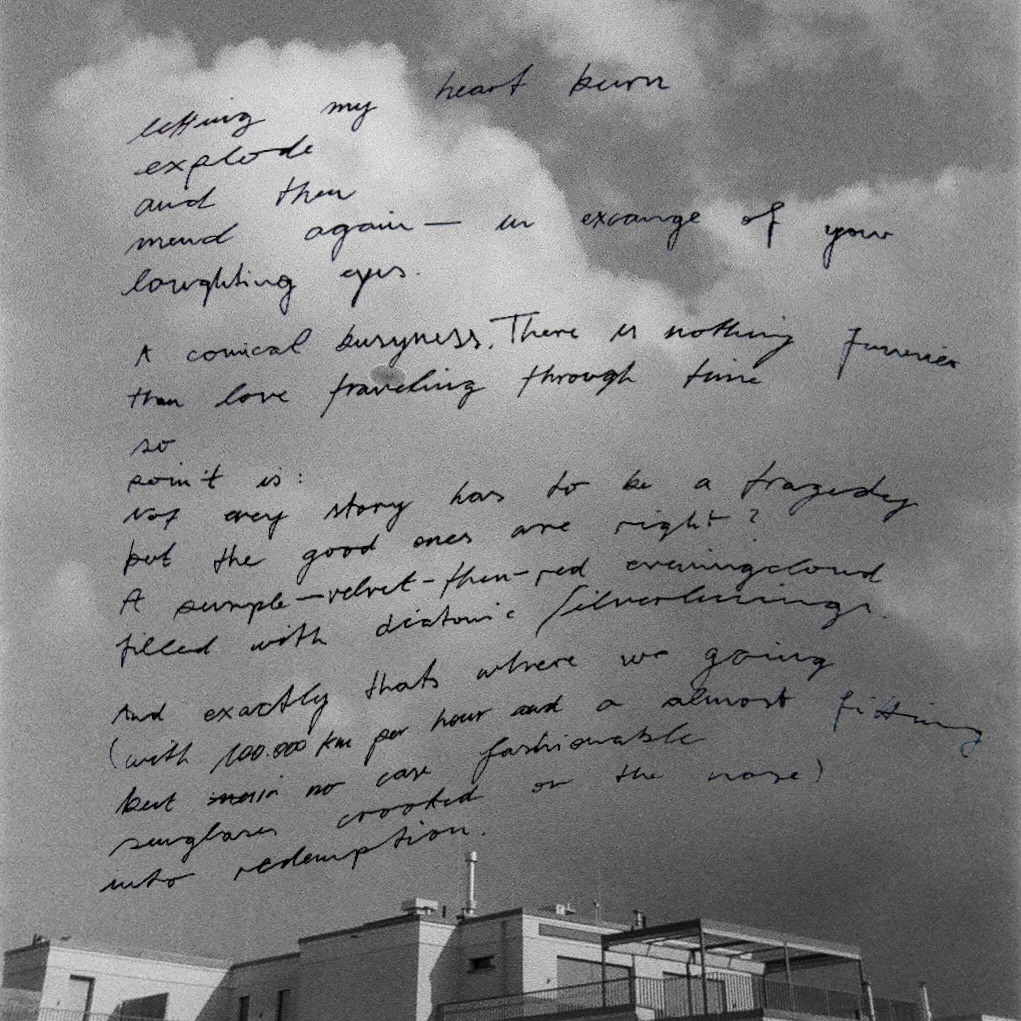 letting my heart burn
explode
and then
mend again — in excange of your
laughting eyes.
A comical busyness. There is nothing funnier
than love traveling through time
so
poin't is:
Not every story has to be a tragedy
but the good ones are right?
A purple-velvet-then-red eveningcloud
filled with diatonic silverlinings.
And exactly thats where we going
(with 100.000 km per hour and a almost fitting
but no case fashionable
sunglases crooked on the nose)
into redemption.